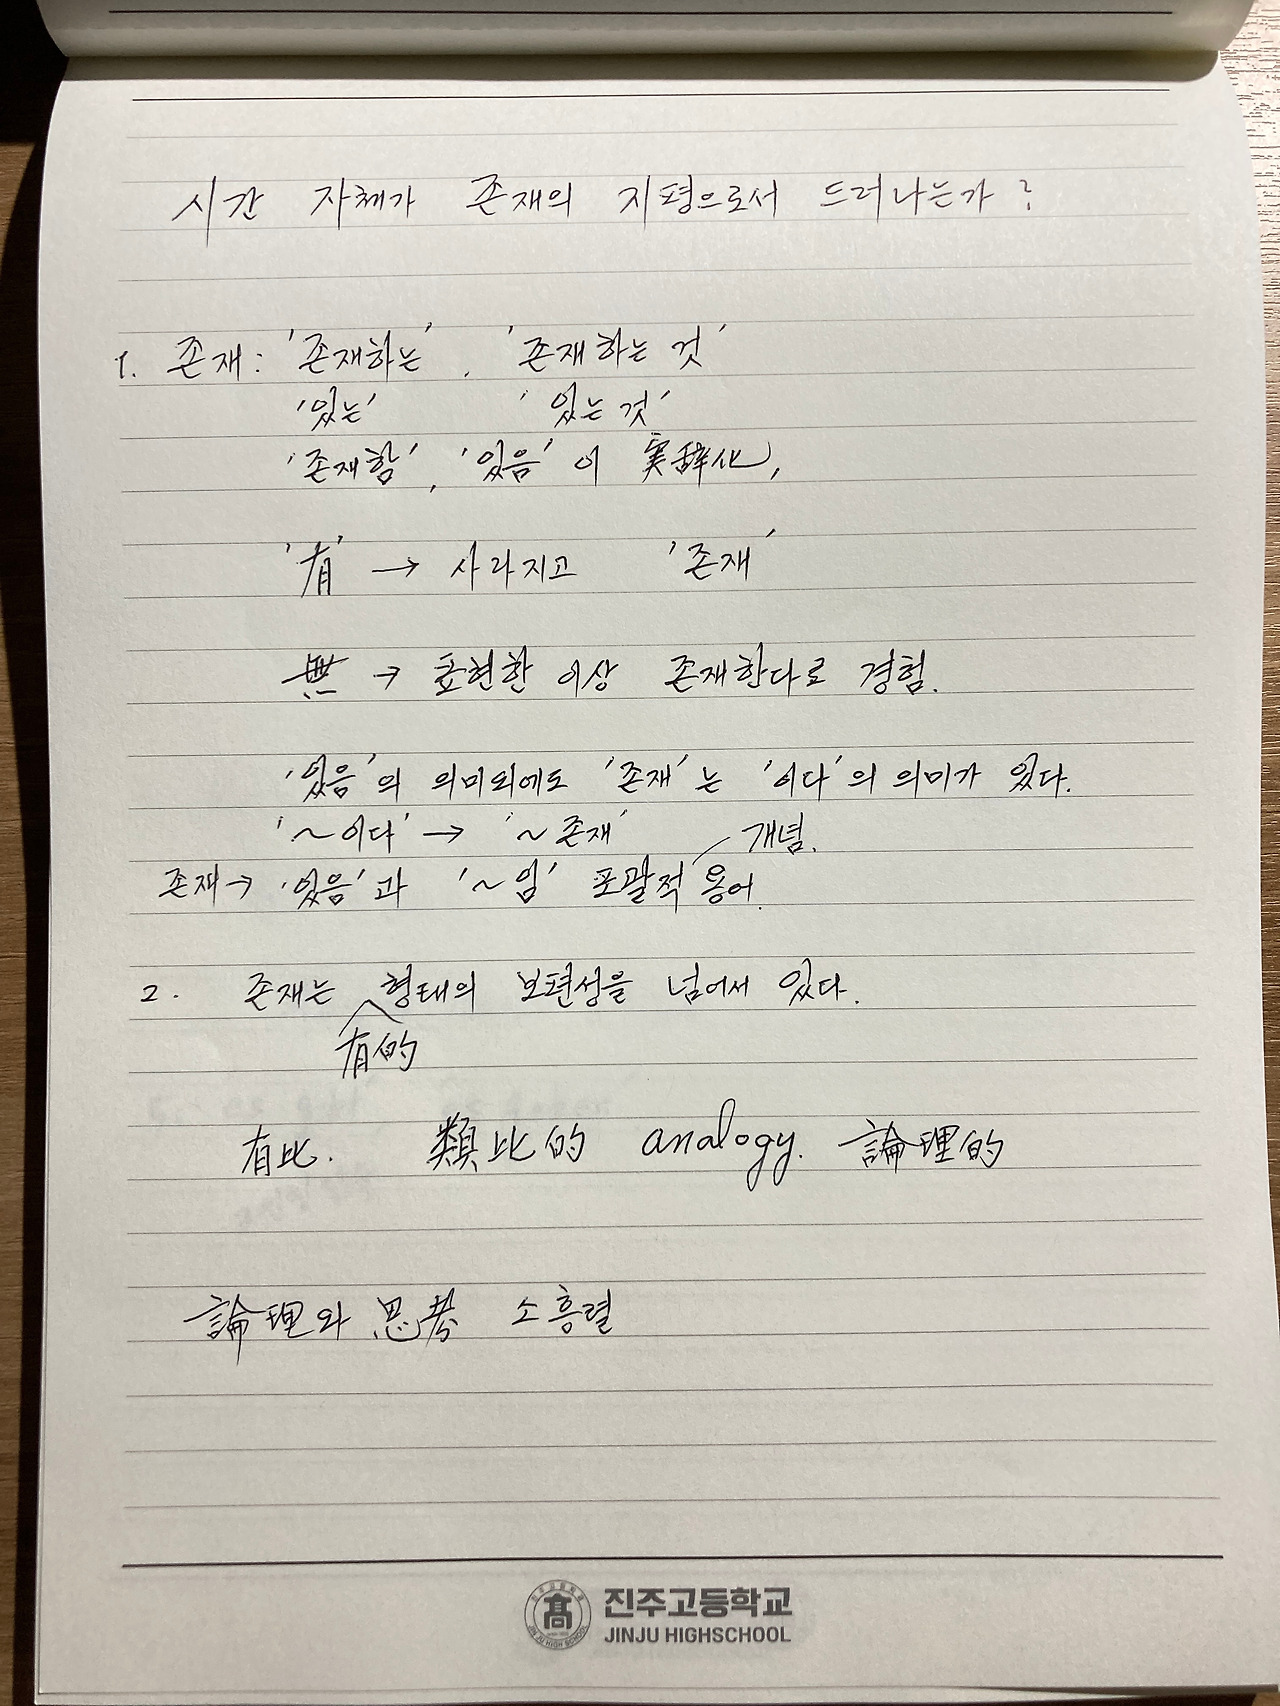 시간 자체가 존재의 지평으로서 드러나는가?
1. 존재: '존재하는', '존재하는 것'
'있는' '있는 것'
'존재함', '있음'이 実辞化,
'有' → 사라지고 '존재'
無 → 표현한 이상 존재한다로 경험.
'있음'의 의미외에도 '존재'는 '이다'의 의미가 있다.
'~이다' → '~존재' 개념.
존재→ '있음'과 '~임' 포괄적 용어.
2. 존재는 형태의 보편성을 넘어서 있다.
有的
有比. 類比的 analogy. 論理的
論理와 思考 소흥렬
진주고등학교
JINJU HIGHSCHOOL